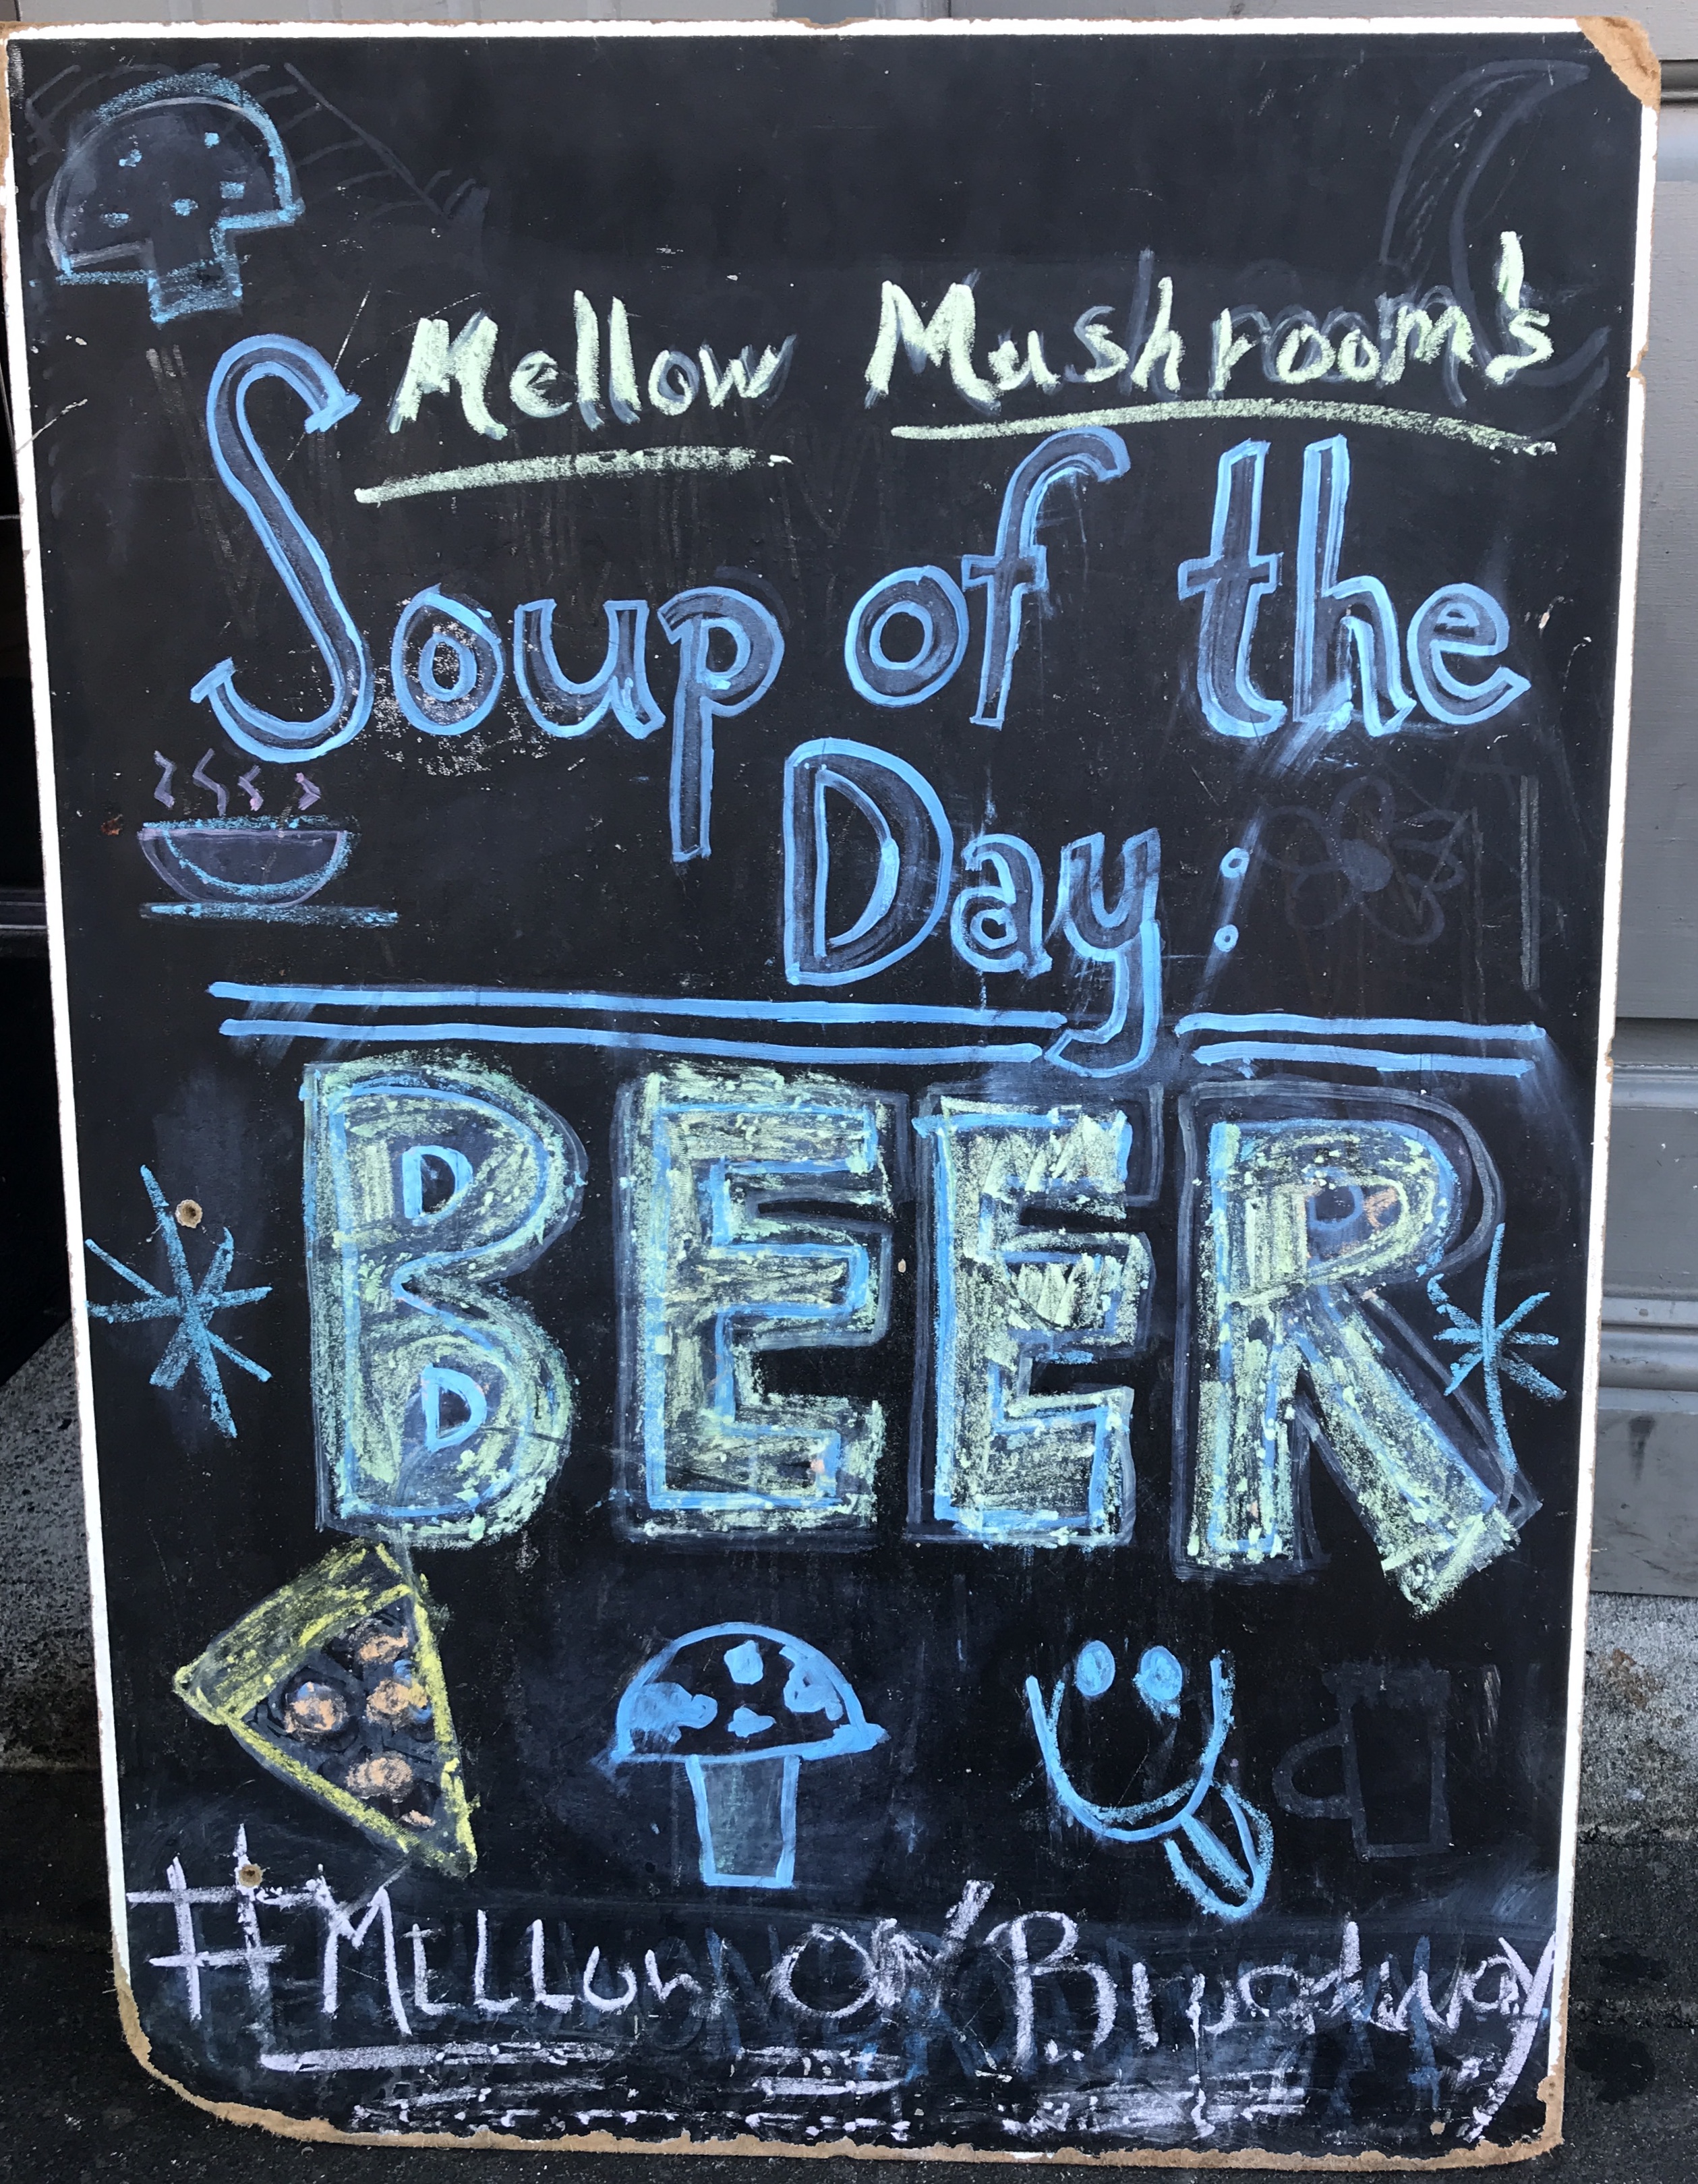 Mellow Mushroom's
Soup of the
Day:
BEER
#Mellow On Broadway